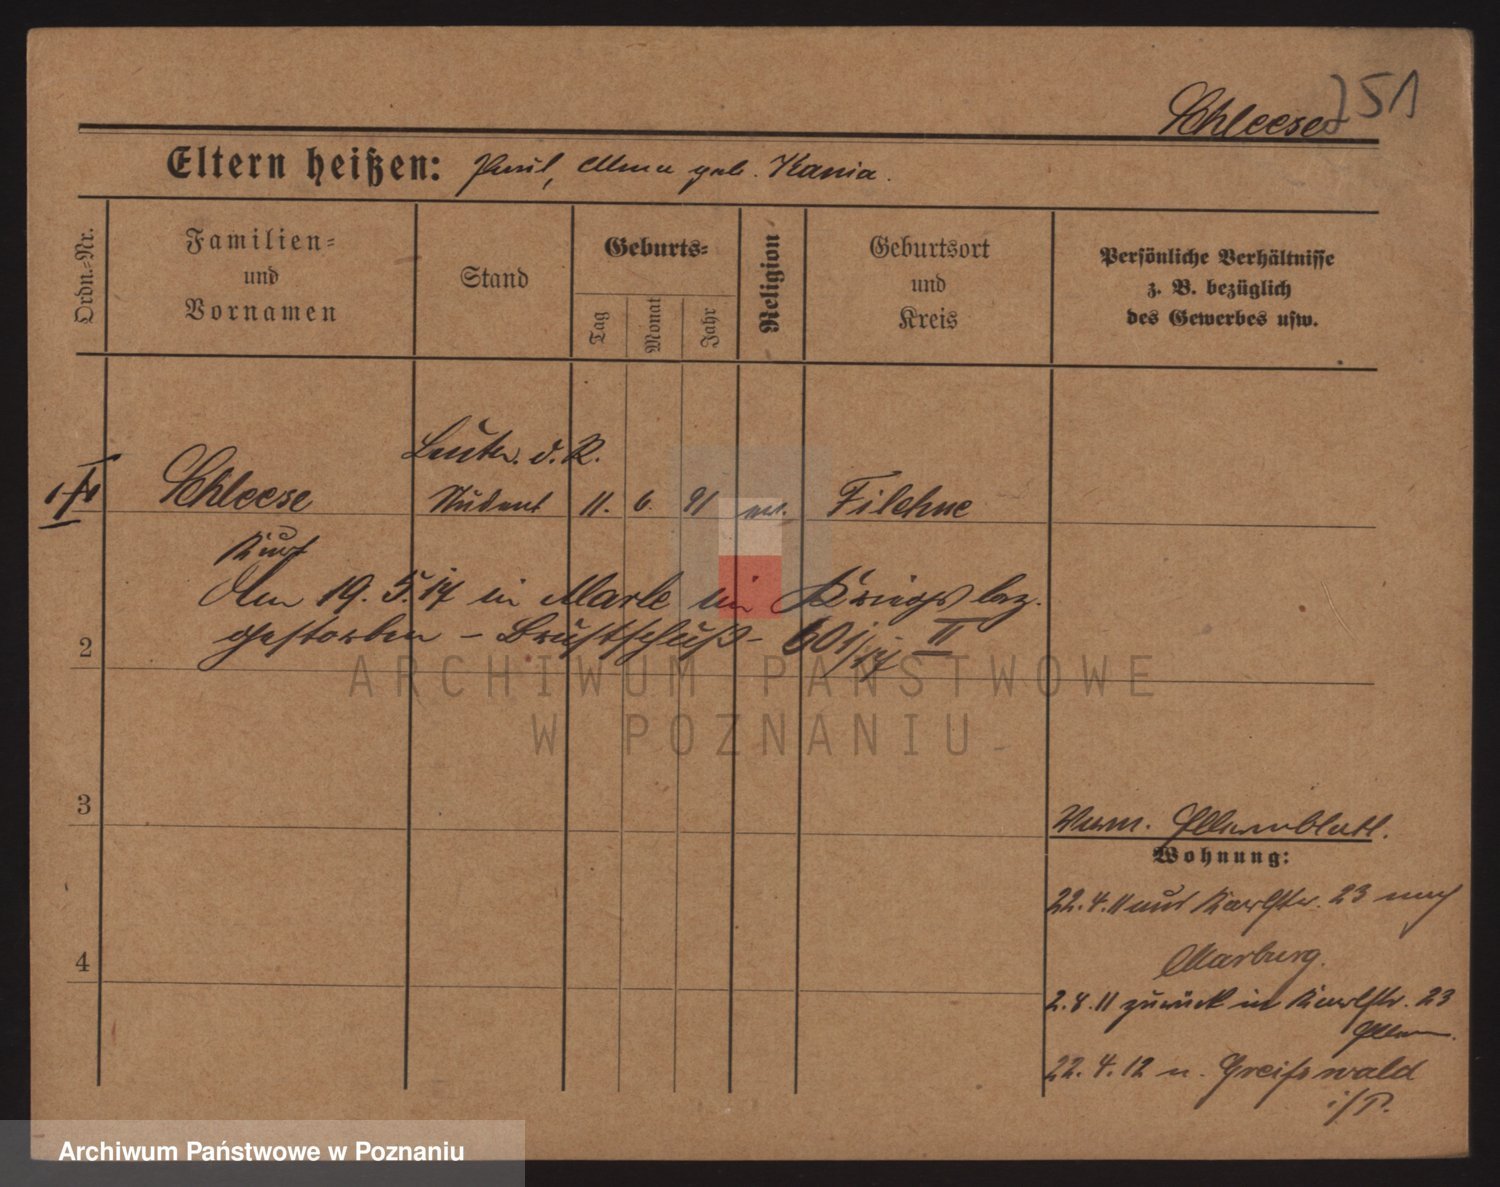 Schleese
251
Eltern heißen: Paul, Alma geb. Kania.
Ordn.-Nr.
Familien-
und
Vornamen
Stand
Geburts-
Tag
Monat
Jahr
Religion
Geburtsort
und
Kreis
Persönliche Verhältnisse
z. B. bezüglich
des Gewerbes usw.
Leutn. d. R.
Schleese Student 11. 6. 91 ev. Filehne
Kurt
Am 19. 5. 17 in Marle im Kriegslaz.
gestorben – Brustschuß – 601/17 II
2
3
4
Verm. Elternblatt.
Wohnung:
22. 4. 11 aus Karlstr. 23 nach
Marburg.
2. 8. 11 zurück in Karlstr. 23
Eltern.
22. 4. 12 n. Greifswald
i/P.
ARCHIWUM PAŃSTWOWE
W POZNANIU
Archiwum Państwowe w Poznaniu